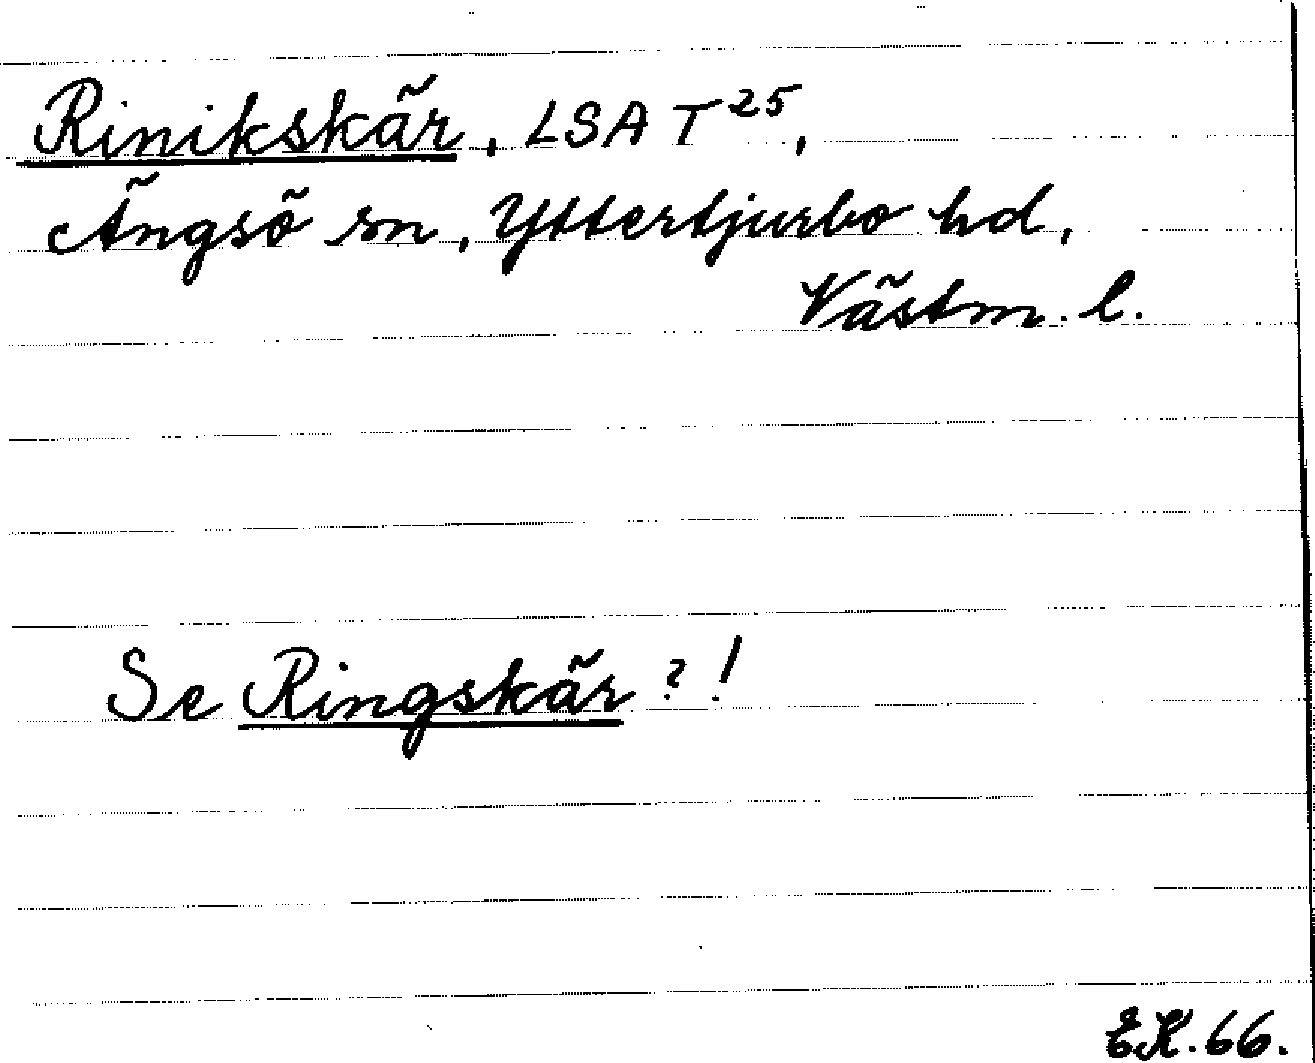 Rinikskär, LSA T²⁵,
Ängsö sn, Yttertjurbo hd,
Västm. l.
Se Ringskär ? !
EK. 66.